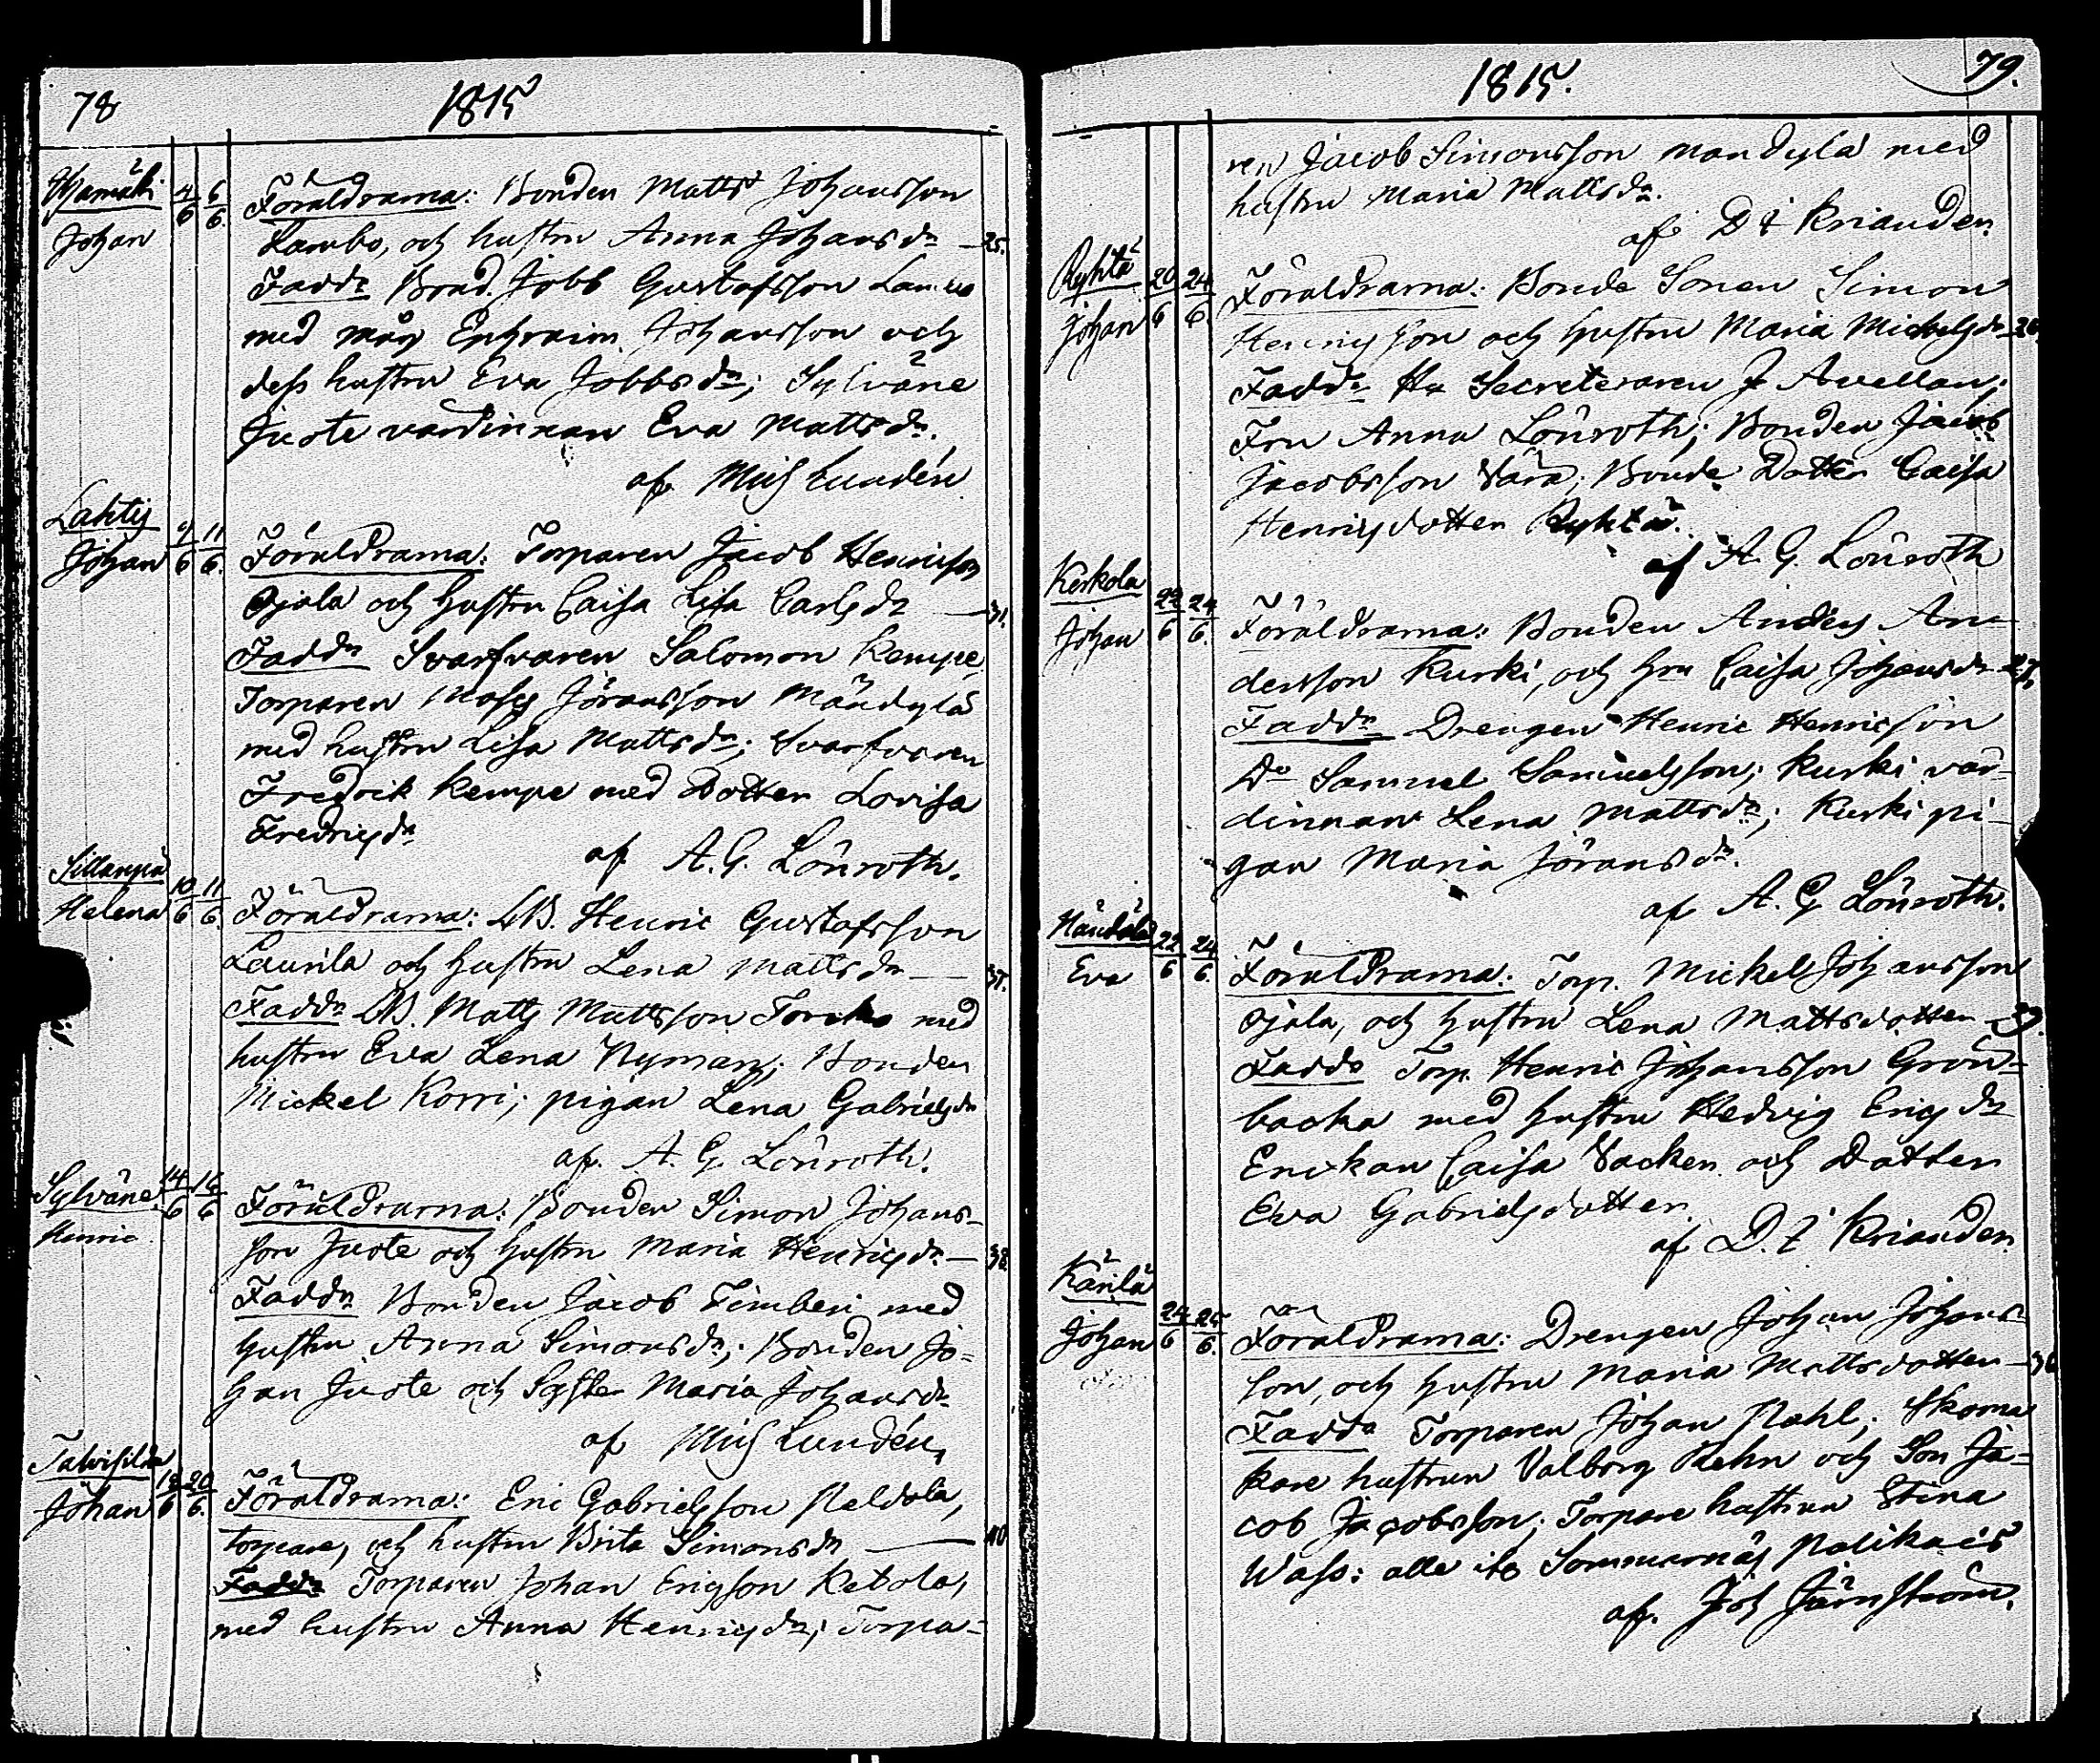 78
1815
Johan
4/6 6/6
Föräldrarna: Bonden Matts Johansson
Lambo, och hustru Anna Johansdr — 25.
Faddr Bond. Jobb Gustafsson
med måg Ephraim Johansson och
dess hustru Eva Jobbsdr; Sylväne
Juste värdinnan Eva Mattsdr.
af Mich Lundén
Lahty
Johan
9/6 11/6.
Föräldrarna: Torparen Jacob Henricsson
Ojala och hustru Caisa Lisa Carlsdr — 31.
Faddr Svarfvaren Salomon Kempe,
Torparen Moses Jöransson Mändylä
med hustru Lisa Mattsdr; Svarfvaren
Fredrik Kempe med Dotter Lovisa
Fredricsdr
af A. G. Lönroth.
Sillanpä
Helena
10/6 11/6.
Föräldrarna: LB. Henric Gustafsson
Laurila och hustru Lena Mattsdr —
Faddr LB. Matts Mattsson med
hustru Eva Lena Nyman; Bonden
Mickel Korri; pigan Lena Gabrielsdr
af. A. G. Lönroth.
Sylväne
Henric
14/6 16/6
Föräldrarna: Bonden Simon Johans-
son Juste och hustru Maria Henricsdr — 38.
Faddr Bonden Jacob Timberi med
hustru Anna Simonsdr; Bonden Jo-
han Juste och Syster Maria Johansdr
af Mich Lundén,
Talvisilda
Johan
18/6 20/6.
Föräldrarna: Eric Gabrielsson Peldola,
torpare, och hustru Brita Simonsdr — 40
Faddr Torparen Johan Ericsson Ketola,
med hustru Anna Henricsdr; Torpa-
1815.
79.
ren Jacob Simonsson Mandylä med
hustru Maria Mattsdr.
af D. Krianden.
Ryhtä
Johan
20/6 24/6.
Föräldrarna: Bonde Sonen Simon
Henricsson och hustru Maria Michelsdr — 26.
Faddr Hr Secreteraren J Avellan;
Fru Anna Lönroth; Bonden Jacob
Jacobsson Vära; Bonde Dotter Caisa
Henricsdotter Ryhtä.
af A. G. Lönroth
Keskola
Johan
22/6 24/6.
Föräldrarna: Bonden Anders An-
dersson Kurki, och hru Caisa Johansdr — 27.
Faddr Drengen Henric Henricsson
Do Samuel Samuelsson; Kurki vär-
dinnan Lena Mattsdr; Kurki pi-
gan Maria Jöransdr.
af A. G Lönroth.
Eva
22/6 24/6.
Föräldrarna: Torp. Mickel Johansson
Ojala, och hustru Lena Mattsdotter — 39.
Faddr Torp. Henric Johansson Grön-
backa med hustru Hedvig Ericsdr
Enckan Caisa Backen och Dotter
Eva Gabrielsdotter.
af D. Krianden.
Kärilä
Johan
24/6 25/6.
Föräldrarna: Drengen Johan Johans-
son, och hustru Maria Mattsdotter —
Faddr Torparen Johan Pahl; Skoma-
kare hustrun Valborg Rehn och Son Ja-
cob Jacobsson; Torpare hustrun Stina
Wass: alle ifr Sommarnäs Palikais
af. Joh Järnström.